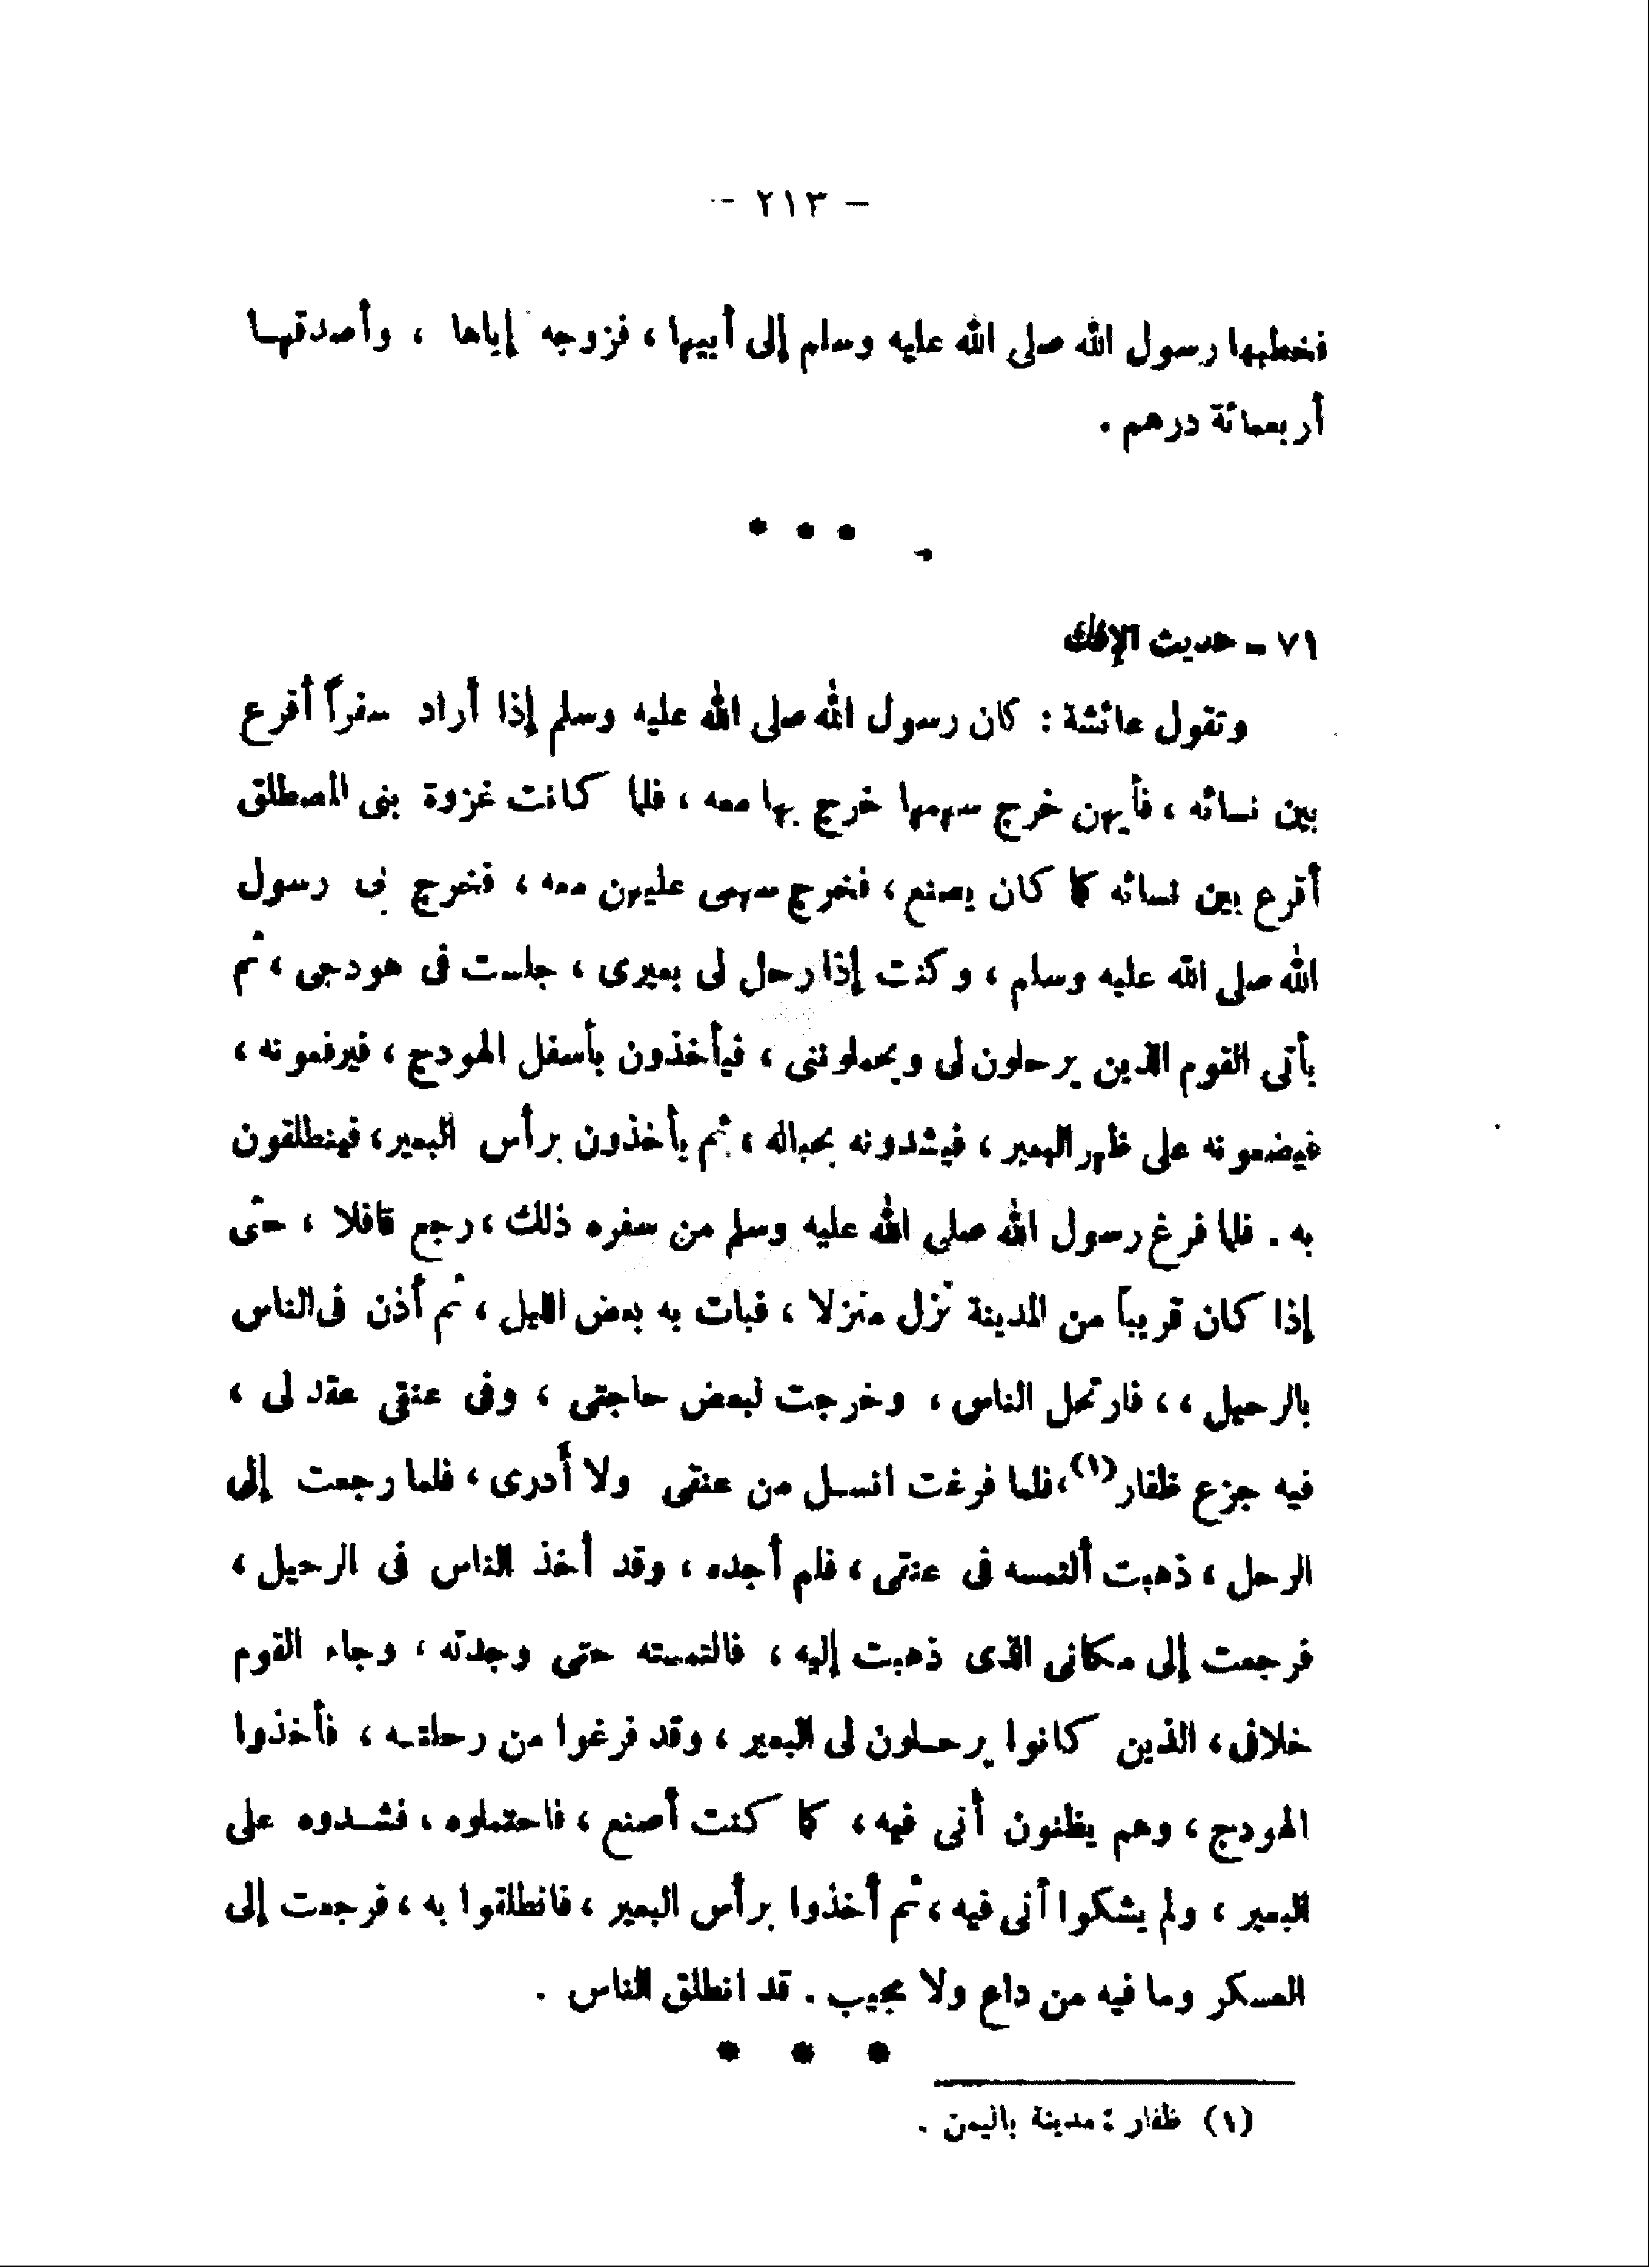 - ٢١٣ -
فخطبها رسول الله صلى الله عليه وسلم إلى أبيها ، فزوجه إياها ، وأصدقها
أربعمائة درهم .
* * *
٧١ - حديث الإفك
وتقول عائشة : كان رسول الله صلى الله عليه وسلم إذا أراد سفراً أقرع
بين نسائه ، فأيهن خرج سهمها خرج بها معه ، فلما كانت غزوة بنى المصطلق
أقرع بين نسائه كما كان يصنع ، فخرج سهمى عليهن معه ، فخرج بى رسول
الله صلى الله عليه وسلم ، وكنت إذا رحل لى بعيرى ، جلست فى هودجى ، ثم
يأتى القوم الذين يرحلون لى ويحملوننى ، فيأخذون بأسفل الهودج ، فيرفعونه ،
فيضعونه على ظهر البعير ، فيشدونه بحباله ، ثم يأخذون برأس البعير ، فينطلقون
به . فلما فرغ رسول الله صلى الله عليه وسلم من سفره ذلك ، رجع قافلا ، حتى
إذا كان قريباً من المدينة نزل منزلا ، فبات به بعض الليل ، ثم أذن فى الناس
بالرحيل ، ، فارتحل الناس ، وخرجت لبعض حاجتى ، وفى عنقى عقد لى ،
فيه جزع ظفار (١) ، فلما فرغت انسل من عنقى ولا أدرى ، فلما رجعت إلى
الرحل ، ذهبت ألتمسه فى عنقى ، فلم أجده ، وقد أخذ الناس فى الرحيل ،
فرجعت إلى مكانى الذى ذهبت إليه ، فالتمسته حتى وجدته ، وجاء القوم
خلافى ، الذين كانوا يرحلون لى البعير ، وقد فرغوا من رحلته ، فأخذوا
الهودج ، وهم يظنون أنى فيه ، كما كنت أصنع ، فاحتملوه ، فشدوه على
البعير ، ولم يشكوا أنى فيه ، ثم أخذوا برأس البعير ، فانطلقوا به ، فرجعت إلى
العسكر وما فيه من داع ولا مجيب . قد انطلق الناس .
* * *
(١) ظفار : مدينة باليمن .